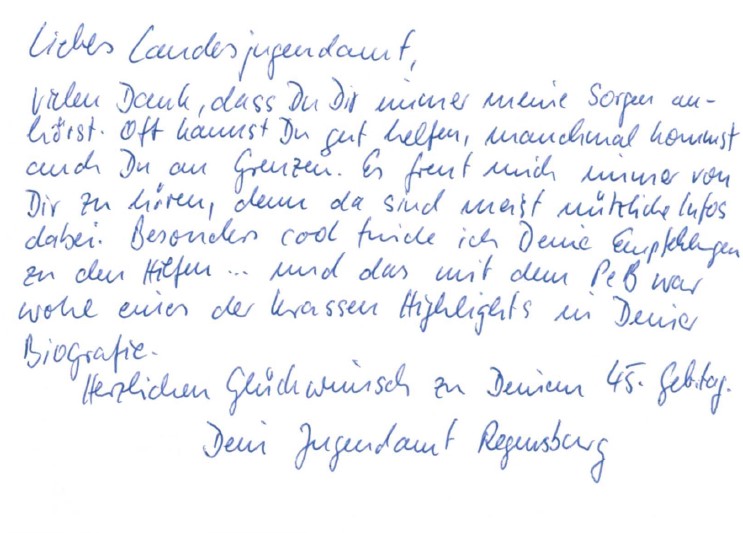 Liebes Landesjugendamt,
vielen Dank, dass Du Dir immer meine Sorgen an-
hörst. Oft kannst Du gut helfen, manchmal kommst
auch Du an Grenzen. Es freut mich immer von
Dir zu hören, denn da sind meist nützliche Infos
dabei. Besonders cool finde ich Deine Empfehlungen
zu den Hilfen... und das mit dem PeB war
wohl eines der krassen Highlights in Deiner
Biografie.
Herzlichen Glückwunsch zu Deinem 45. Geb.tag.
Dein Jugendamt Regensburg